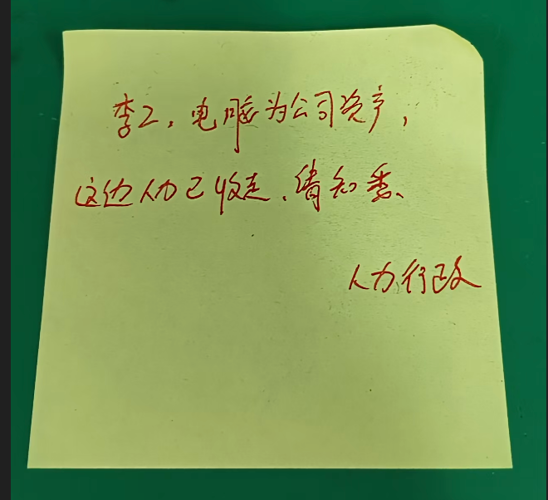 李工，电脑为公司资产，
这边人力已收走、请知悉、
人力行政